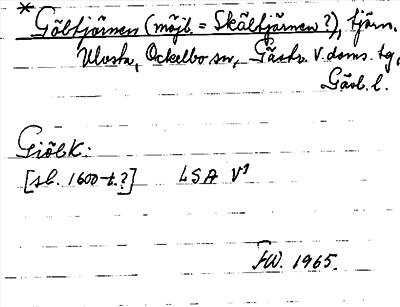 * Göltjärnen (möjl. = Skältjärnen?), tjärn,
Ulvsta, Ockelbo sn, Gästr. v. doms. tg,
Gävl. l.
Giölk:
[sl. 1600-t.?] LSA V¹
FW. 1965.